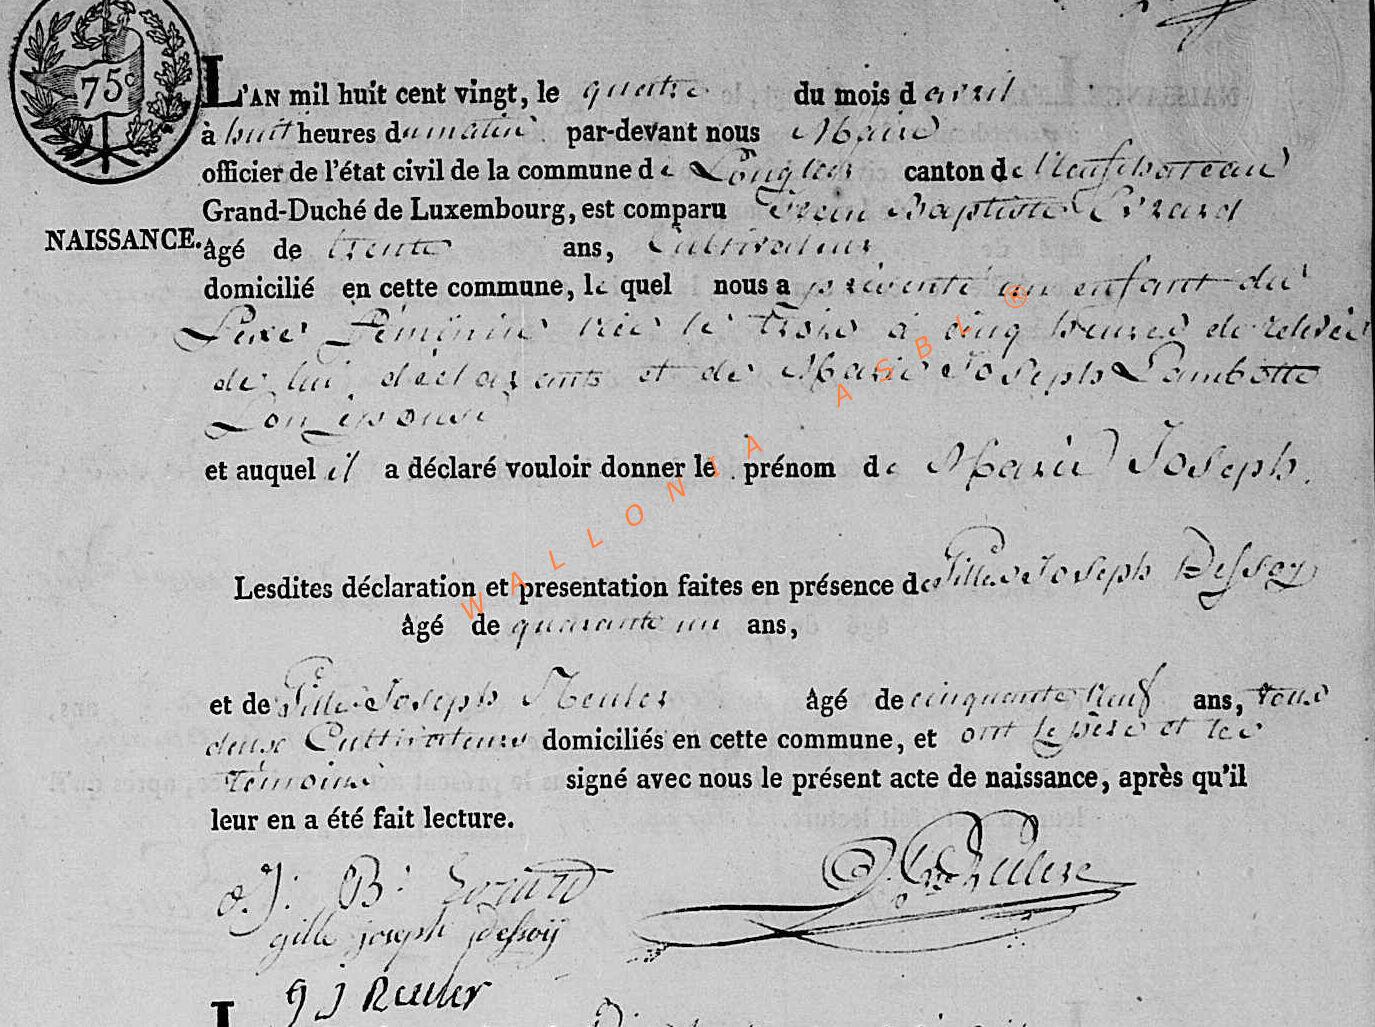 75c
L'AN mil huit cent vingt, le quatre du mois d avril
à huit heures du matin par-devant nous Maire
officier de l'état civil de la commune de Longlier canton de Neufchateau
Grand-Duché de Luxembourg, est comparu Jean Baptiste
NAISSANCE.
âgé de trente ans, Cultivateur
domicilié en cette commune, le quel nous a présenté un enfant du
Sexe féminin née le trois à cinq heures de relevée
de lui déclarant et de Marie Joseph Lambotte
Son épouse
et auquel il a déclaré vouloir donner le prénom de Marie Joseph.
Lesdites déclaration et presentation faites en présence de Gille Joseph Dessoy
âgé de quarante un ans,
et de Gille Joseph âgé de cinquante neuf ans, tous
deux Cultivateurs domiciliés en cette commune, et ont le père et les
témoins signé avec nous le présent acte de naissance, après qu'il
leur en a été fait lecture.
J: B:
gille joseph dessoij
g J
WALLONIA ASBL ®